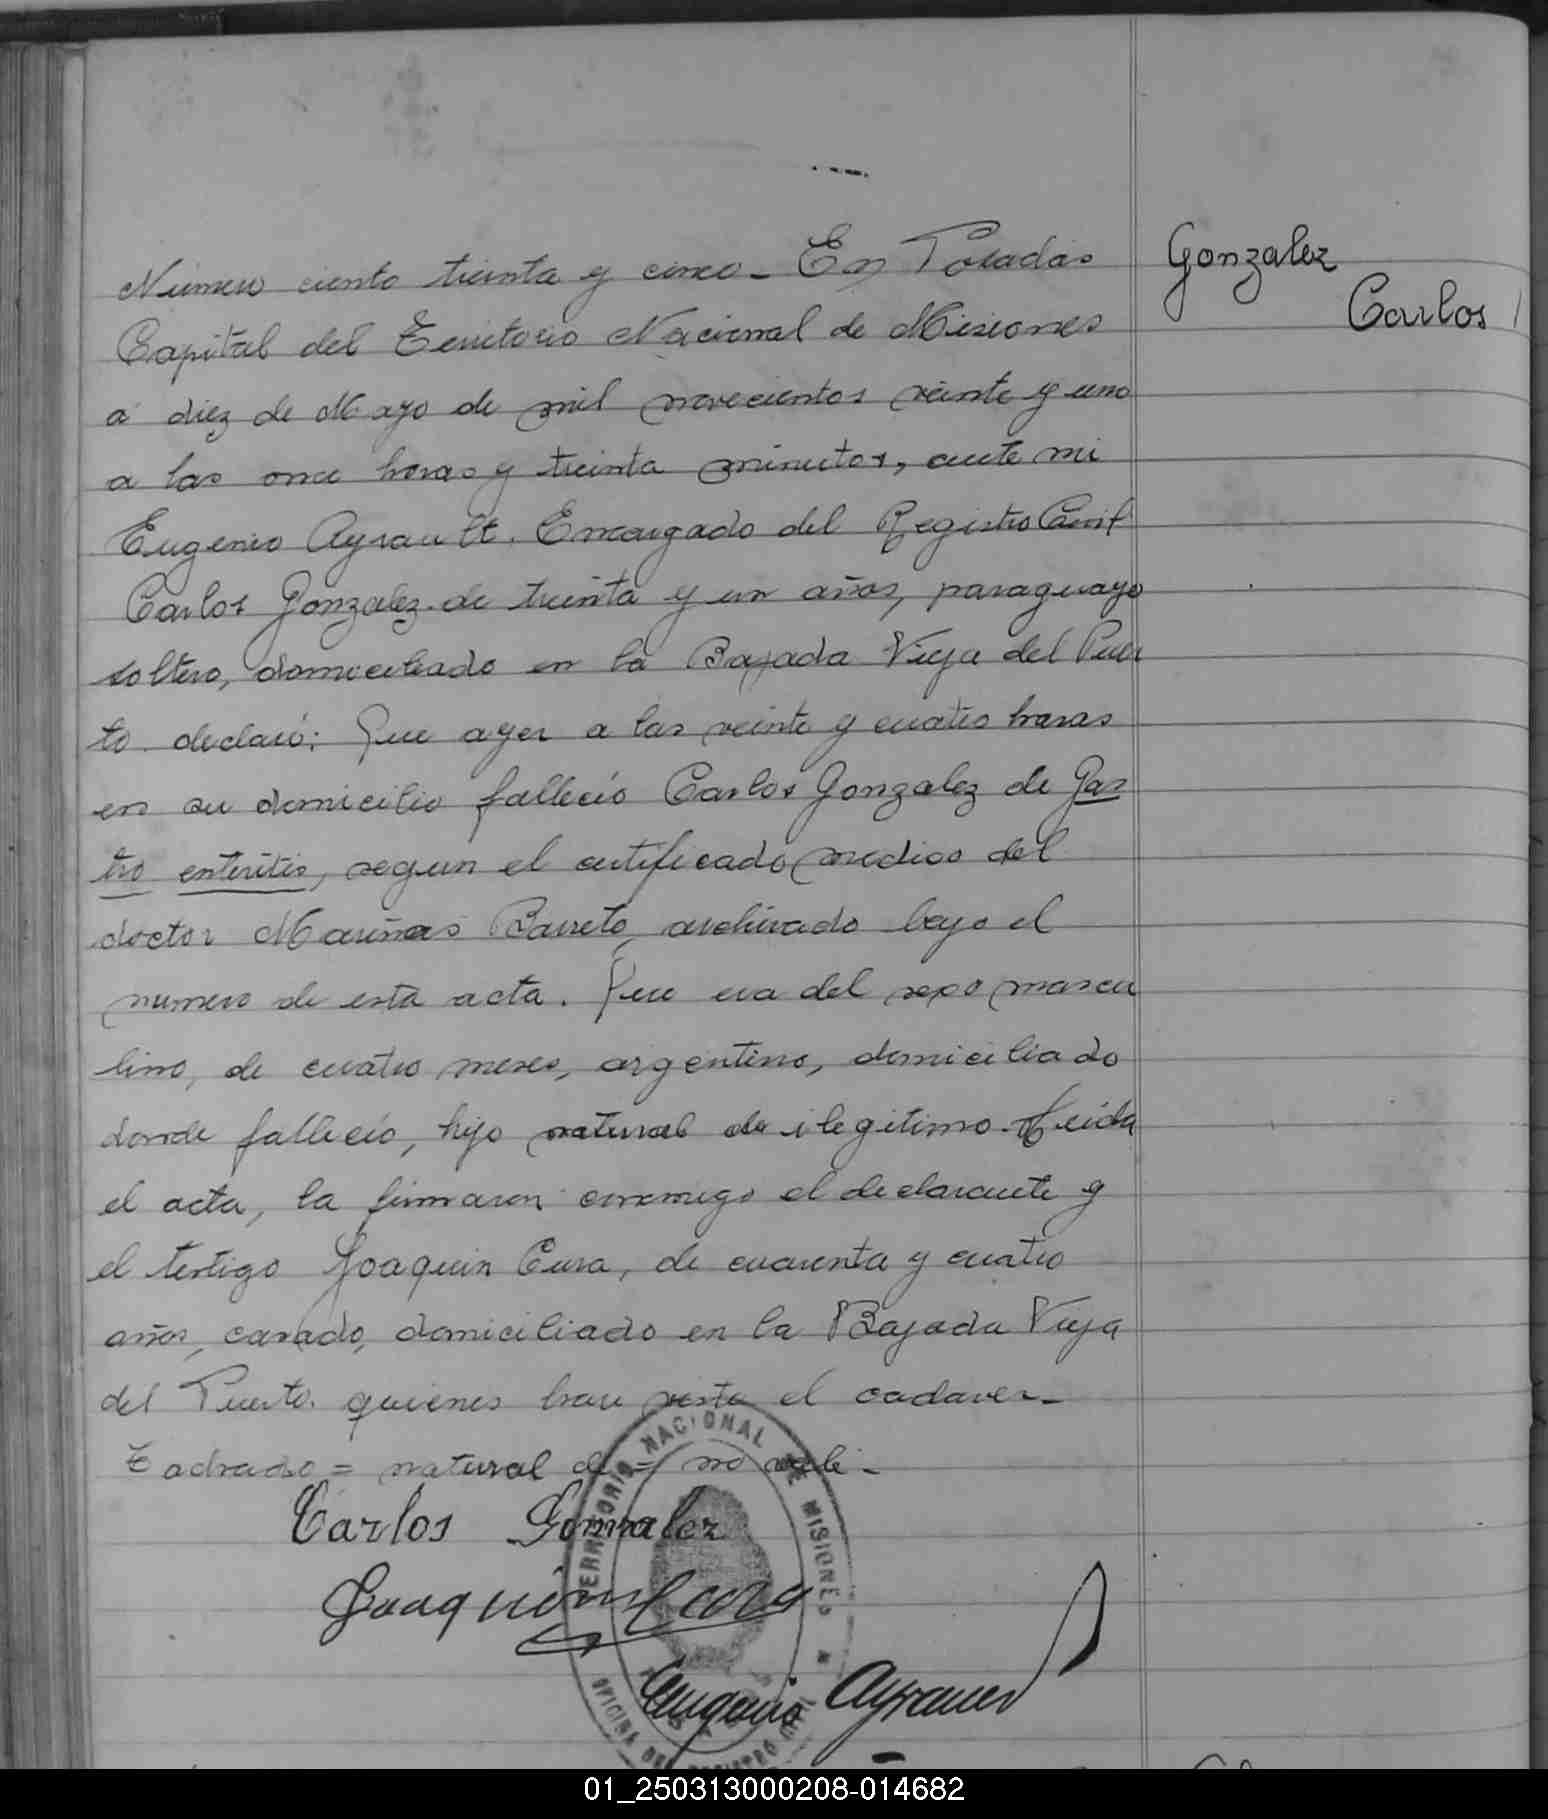 Gonzalez
Carlos
Número ciento treinta y cinco - En Posadas
Capital del Territorio Nacional de Misiones
a diez de Mayo de mil novecientos veinte y uno
a las once horas y treinta minutos, ante mi
Eugenio Ayrault. Encargado del Registro Civil
Carlos Gonzalez de treinta y un años, paraguayo
soltero, domiciliado en la Bajada Vieja del Puer
to. declaró: Que ayer a las veinte y cuatro horas
en su domicilio falleció Carlos Gonzalez de Gas
tro enteritis, segun el certificado medico del
doctor Mariñas Barreto, archivado bajo el
numero de esta acta. Que era del sexo mascu
lino, de cuatro meses, argentino, domiciliado
donde falleció, hijo natural de ilegitimo. Leida
el acta, la firmaron conmigo el declarante y
el testigo Joaquin Cura, de cuarenta y cuatro
años, casado, domiciliado en la Bajada Vieja
del Puerto. quienes han visto el cadaver -
Tadrado = natural de = no vale -
Carlos Gonzalez
Joaquin
Eugenio Ayrault
TERRITORIO NACIONAL DE MISIONES
OFICINA DEL REGISTRO CIVIL
01_250313000208-014682